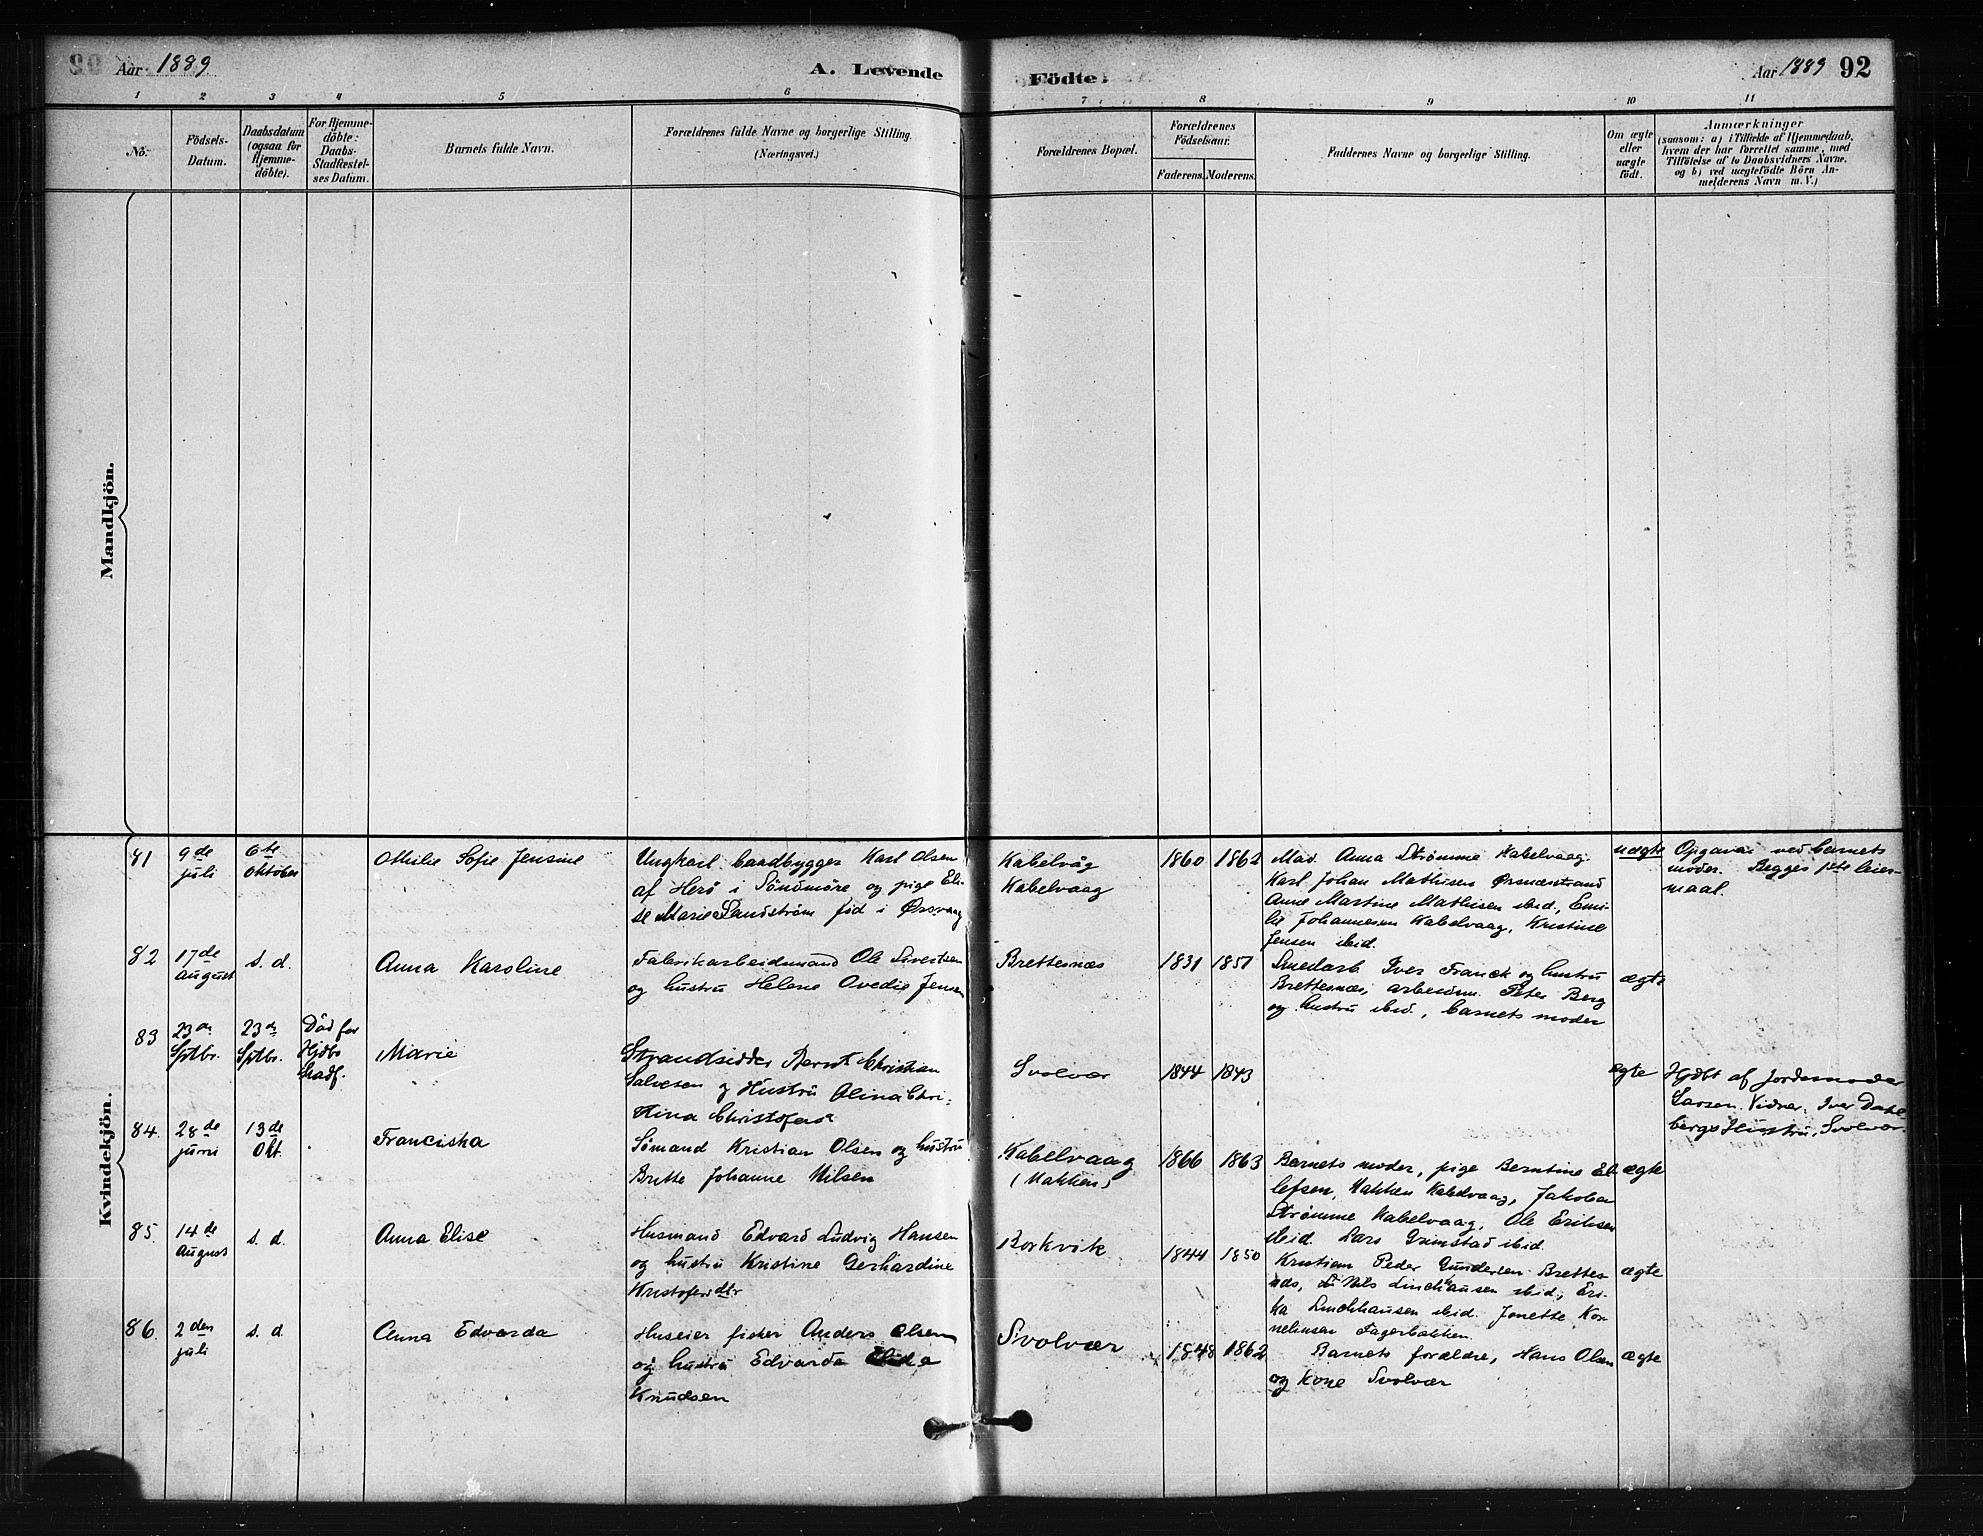 Aar 1889
A. Levende
Födte.
Aar 1889 92
1 2 3 4 5 6 7 8 9 10 11
No.
Födsels-
Datum.
Daabsdatum
(ogsaa for
Hjemme-
döbte).
For Hjemme-
döbte:
Daabs-
Stadfæstel-
ses Datum.
Barnets fulde Navn.
Forældrenes fulde Navne og borgerlige Stilling.
(Næringsvei.)
Forældrenes Bopæl.
Forældrenes
Födselsaar.
Faderens. Moderens.
Faddernes Navne og borgerlige Stilling.
Om ægte
eller
uægte
födt.
Anmærkninger
(saasom: a) i Tilfælde af Hjemmedaab,
hvem der har forrettet samme, med
Tilföielse af to Daabsvidners Navne.
og b) ved uægtefödte Börn An-
melderens Navn m. V.)
Mandkjön.
Kvindekjön.
81
9de
juli
6te
Oktober
Othilie Sofie Jensine
Ungkarl baadbygger Karl Olsen
af Herö i Söndmöre og pige Eli-
se Marie Sandström fød i Ørsvaag
Kabelvåg
Kabelvaag
1860 1862
Mad. Anna Strømme Kabelvaag.
Karl Johan Mathisen Ørsnæsstrand
Anne Martine Mathisen ibid, Emi-
lie Johannesen Kabelvaag, Kristine
Jensen ibid.
uægte
Opgave ved barnets
moder. Begges 1ste leier-
maal.
82
17de
august
s. d.
Anna Karoline
Fabrikarbeidsmand Ole Sivertsen
og hustru Helene Ovedie Jensen
Brettesnæs
1831 1851
Smedarb. Iver Franck og hustru
Brettesnæs, arbeidsm. Peter Berg
og hustru ibid., barnets moder
ægte
83
23de
Sptbr.
23de
Sptbr.
Död før
Hjdbs
stadf.
Marie
Strandsidder Bernt Christian
Salvesen og Hustru Olina Chri-
stina Christofersd
Svolvær
1844 1843
ægte
Hjdbt af Jordemoder
Larsen. Vidner: Iver Dahl
bergs Hustru, Svolvær.
84.
28de
juni
13de
Okt.
Franciska
Sømand Kristian Olsen og hustru
Britte Johanne Nilsen
Kabelvaag
(Makken)
1866 1863
Barnets moder, pige Berntine El-
lefsen, Makken Kabelvaag, Jakobia
Strømme Kabelvaag, Ole Eriksen
ibid. Lars Grimstad ibid.
ægte
85.
14de
august
s. d.
Anna Elise
Husmand Edvard Ludvig Hansen
og hustru Kristine Gerhardine
Kristofersdtr
Borkvik
1844 1850
Kristian Peder Gundersen Brettes-
næs, Nils Linchhausen ibid, Eri-
ka Linchhausen ibid. Jonette Kor-
neliusen Fagerbakken.
ægte
86.
2den
juli
s. d.
Anna Edvarda
Huseier fisker Anders Olsen
og hustru Edvarda
Knudsen
Svolvær
1848 1862
Barnets forældre, Hans Olsen
og Kone Svolvær
ægte